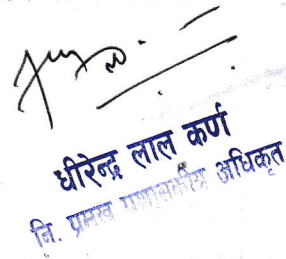 धीरेन्द्र लाल कर्ण
नि. प्रमुख प्रशासकीय अधिकृत